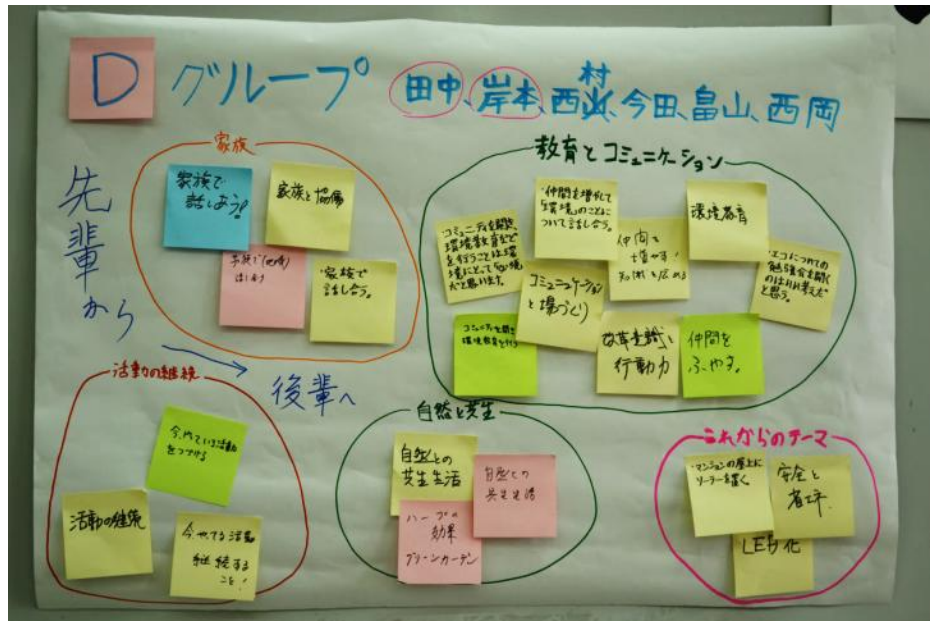 D グループ 田中、岸本、西村、今田、畠山、西岡
先輩から
後輩へ
家族
家族で
話しあう!
家族と協働
家族で
話し合う。
教育とコミュニケーション
コミュニティを開き、
環境教育などで
を行うことは環
境にとって
だと思います。
・仲間を増やして
環境のことに
ついて話し合う。
仲間を
増やす!
環境教育
・エコについての
勉強会を開く
のはよい考えだ
と思う。
コミュニケーション
と場づくり
コミュニティを開き
環境教育を行う
改革意識と
行動力
仲間を
ふやす。
活動の継続
今、やっている活動
をつづける
活動の継続
今、やってる活動
継続する
こと!
自然と共生
自然との
共生生活
自然との
共生生活
ハーブの
効果
グリーンカーテン
これからのテーマ
・マンションの屋上に
ソーラーを置く
安全と
省エネ
LED化